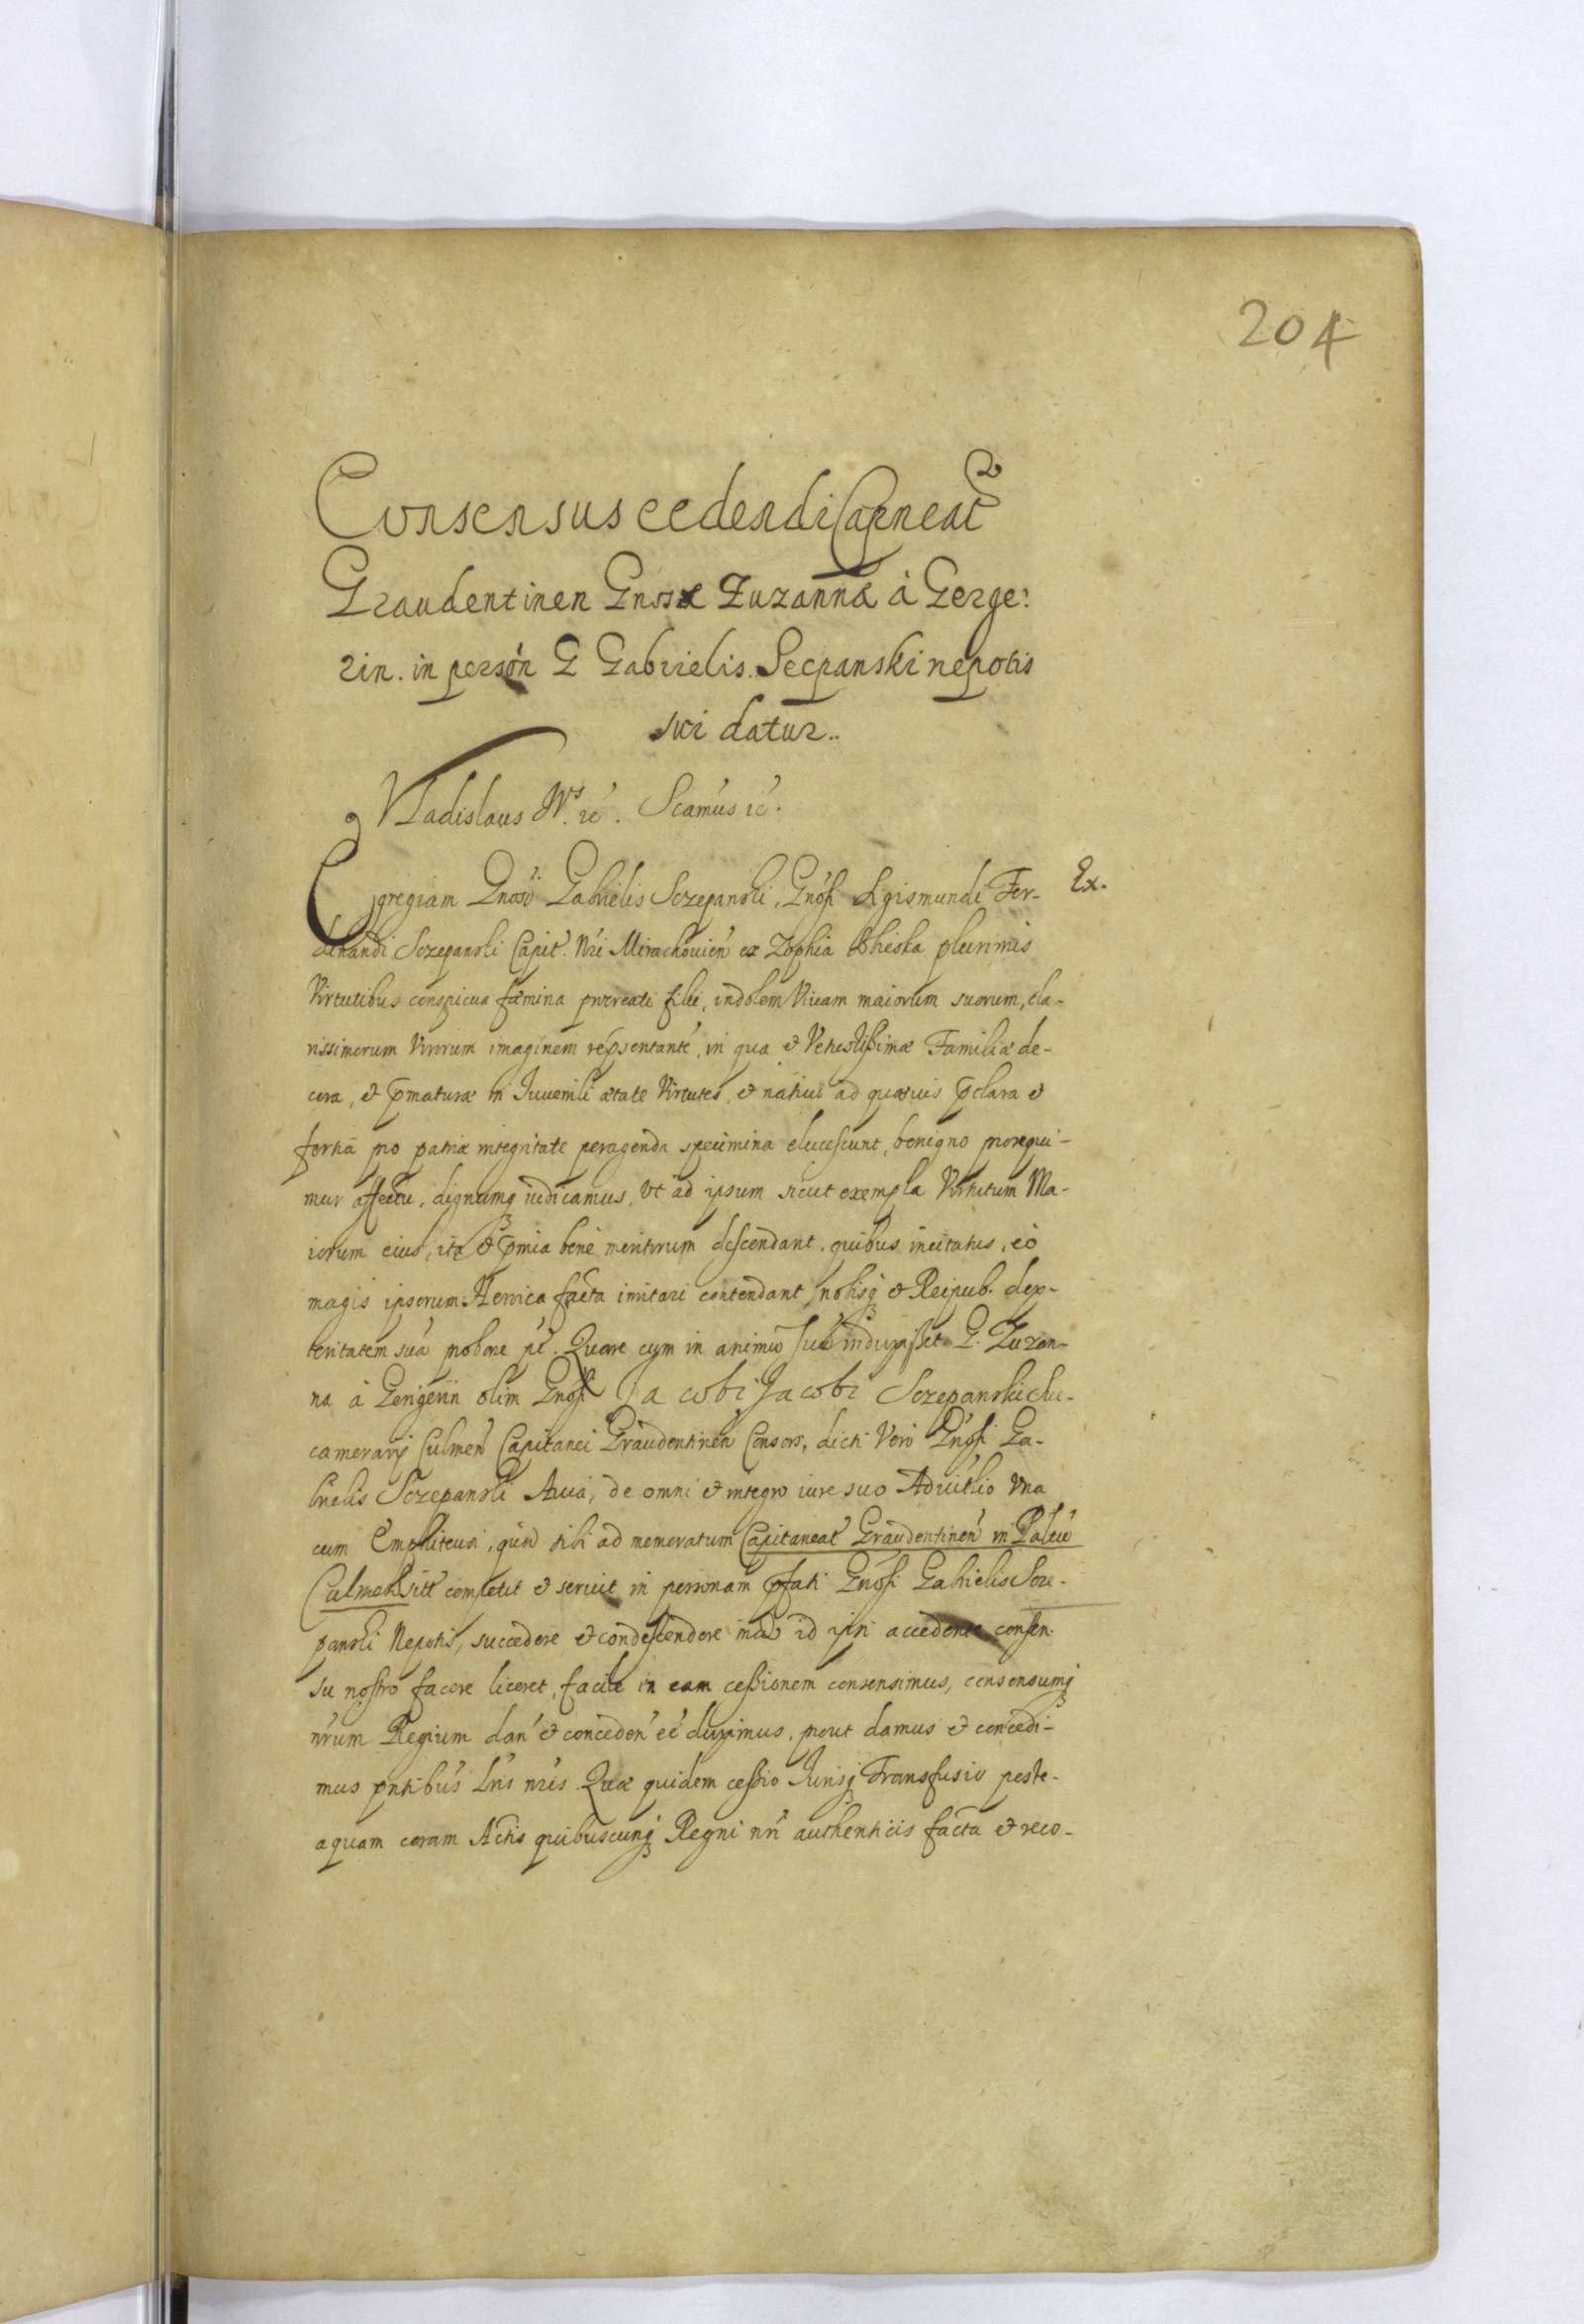 204
Consensus cedendi Capneat
Graudentinen Gnosæ Zuzannæ à Gerge:
rin. in persón G Gabrielis Secpanski nepotis
sui datur..
Vladislaus IVs. rć. Scamus rć.
Egregiam Gnosi Gabrielis Sczepanski, Gnosi Sigismundi Fer- Ex.
dinandi Sczepanski Capit. Nri Mirachouien ex Zophia plurimis
Virtutibus conspicua fæmina procreati filii, indolem viuam maiorum suorum, cla-
rissimorum Virorum imaginem repsentante, in qua et Vetustissimæ Familiæ de-
cora, et pmaturæ in Juuenili ætate Virtutes, et natiui ad quæuis pclara et
fortia pro patriæ integritate peragenda specimina elucescunt, benigno prosequi-
mur affectu, dignumq iudicamus, vt ad ipsum sicut exempla Virtutum Ma-
iorum eius, ita et pmia bene meritorum descendant, quibus incitatus, eò
magis ipsorum Heroica facta imitari contendant, nobisq et Reipub. dex-
teritatem suã probare pt. Quare cum in animũ suũ induxisset G. Zuzan-
na à Gergerin olim Gnosi Jacobi Jacobi Sczepanski Su-
camerarij Culmen Capitanei Graudentinen Consors, dicti Vero Gnosi Ga-
brielis Sczepanski Auia, de omni et integro iure suo Aduitlio Vna
cum Emphiteusi, quod sibi ad memoratum Capitaneat Graudentinen in Paltu
Culmen sitt competit et seruit in personam pfati Gnosi Gabrielis Scze-
panski Nepotis, succedere et condescendere modo id ipsi accedente consen-
su nostro facere liceret, facile in eam cessionem consensimus, consensumq
nrum Regium dan et conceden eē duximus, prout damus et concedi-
mus pntibus Lris nris. Quæ quidem cessio Jurisq Transfusio poste-
aquam coram Actis quibuscunq Regni nri authenticis facta et reco-